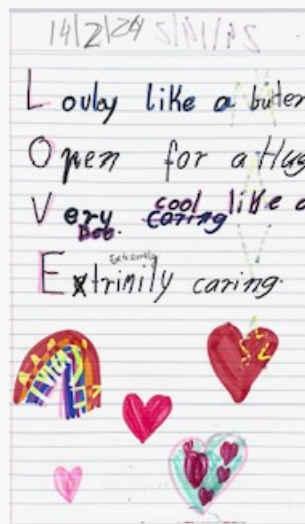 14/2/24
Lovly like a butter
Open for a Hug
Very cool like a
Extrimily caring.